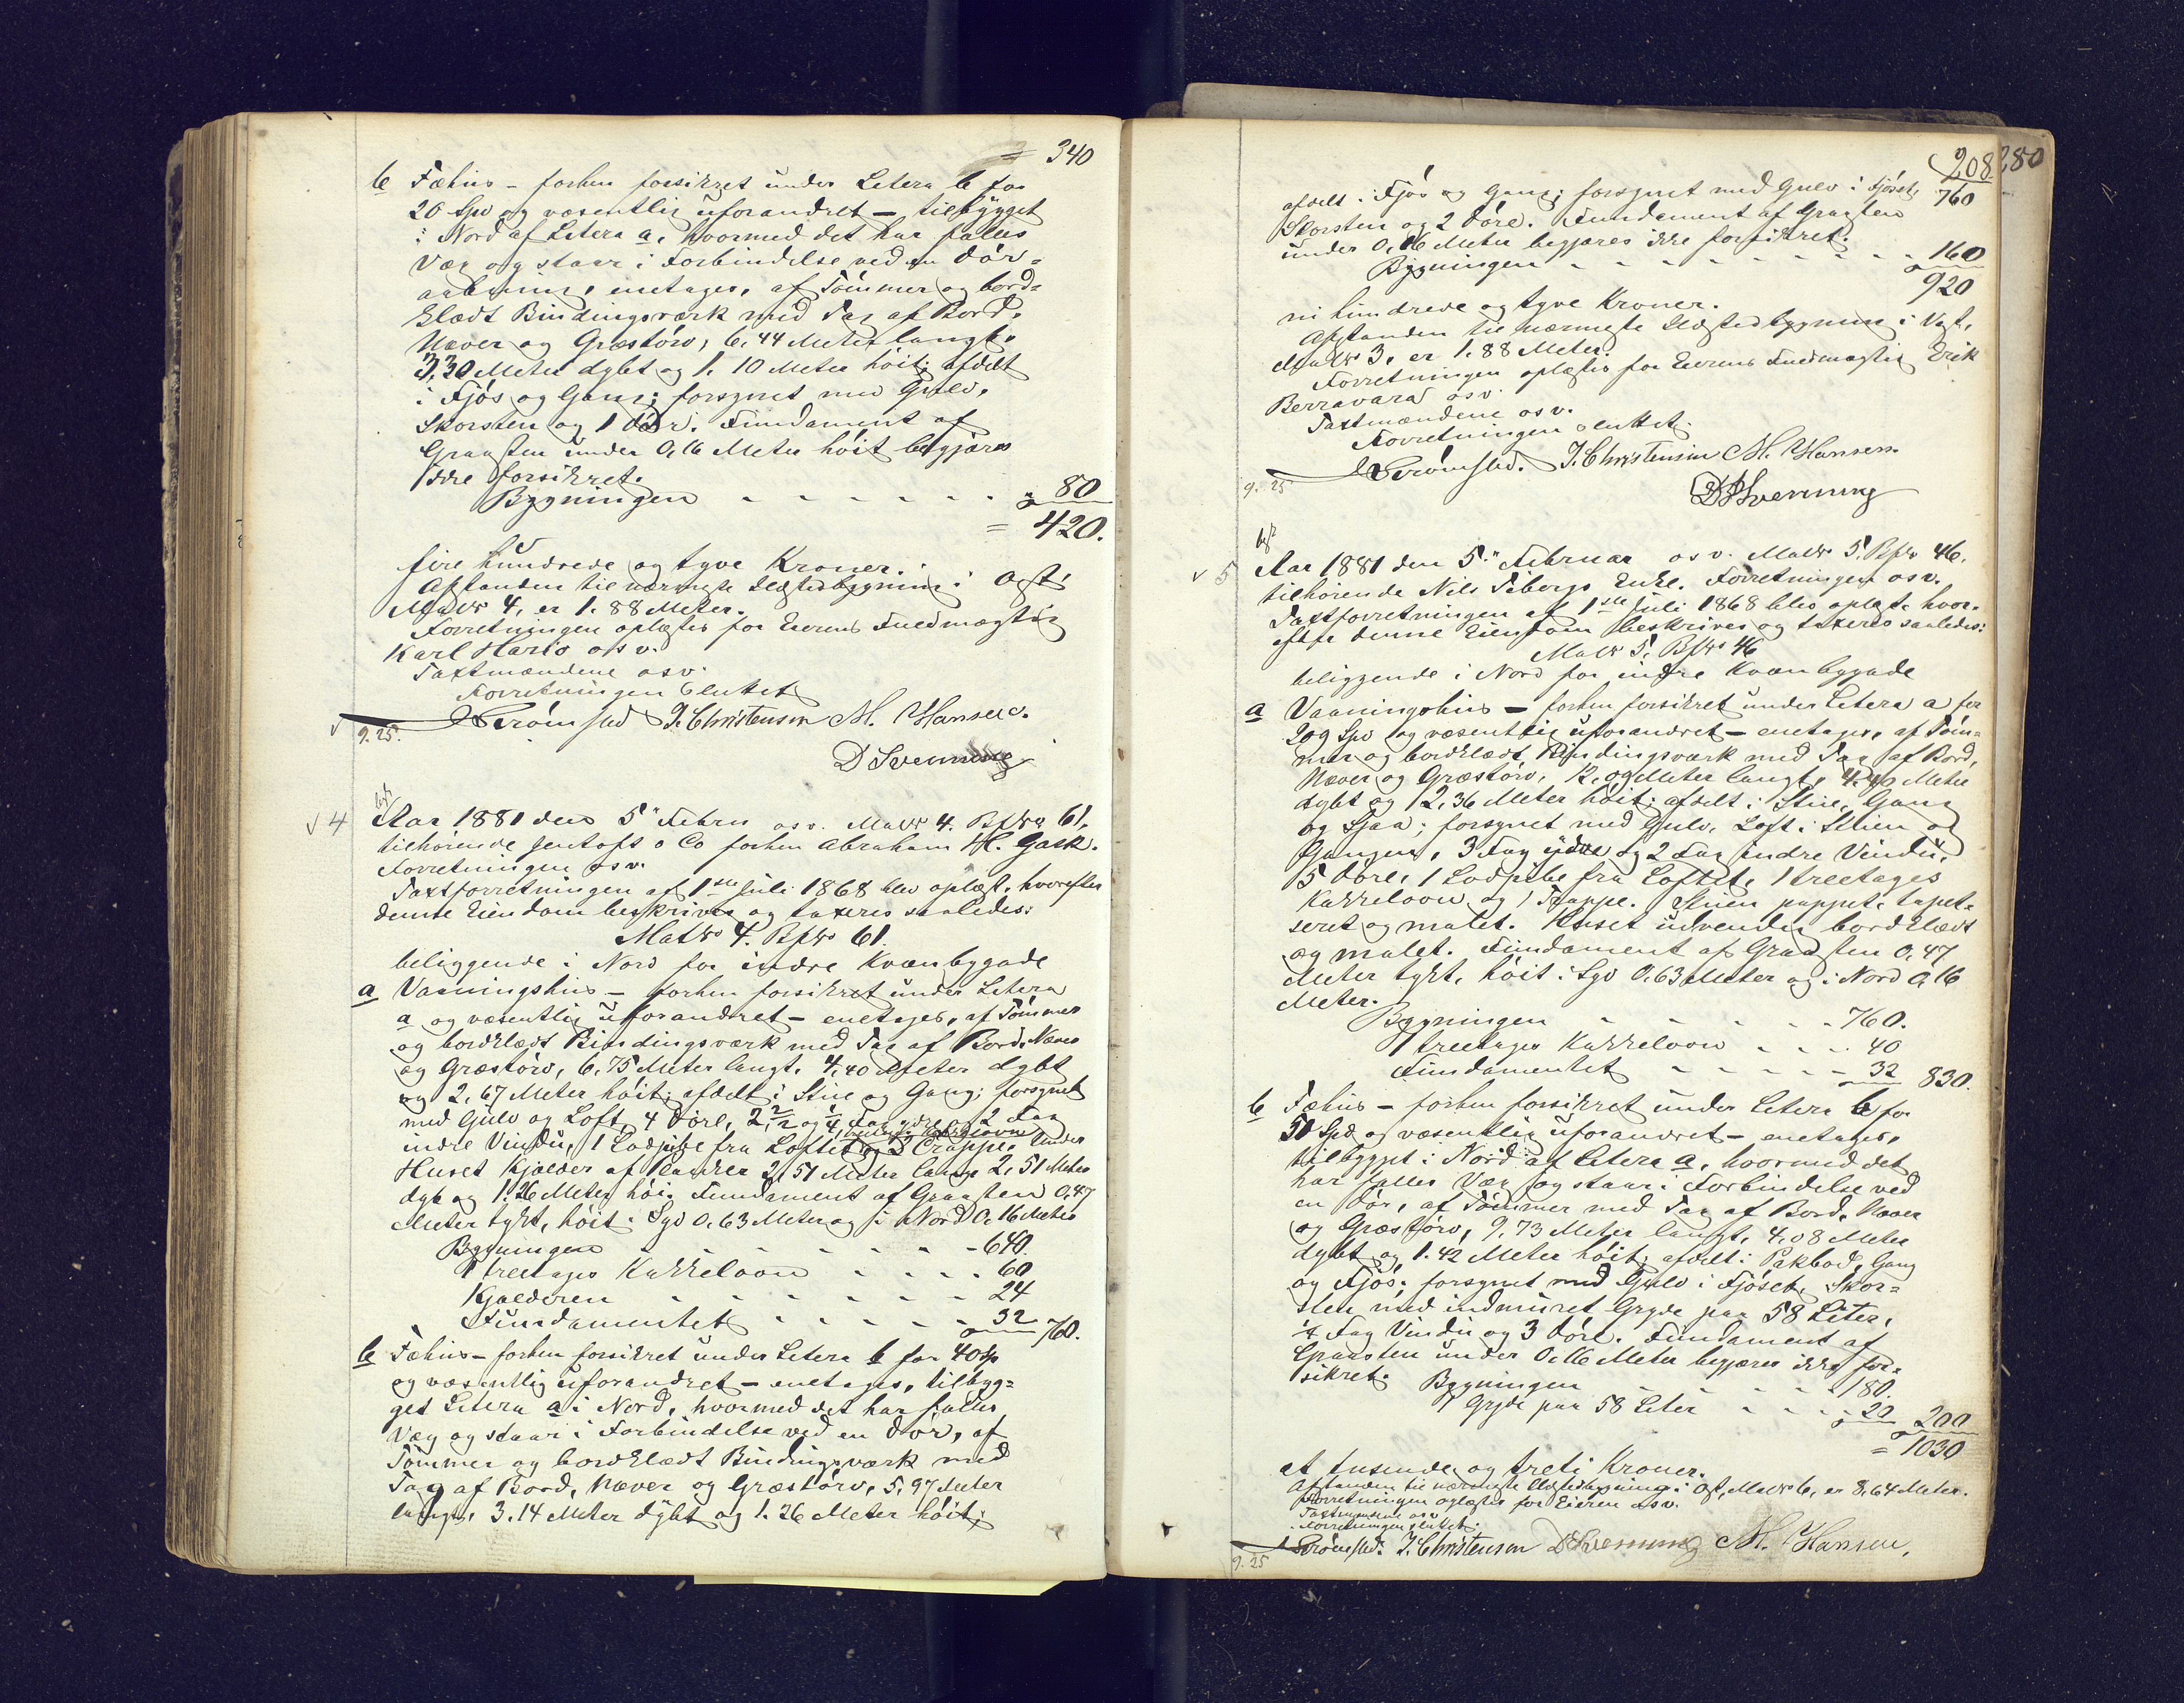 = 340
b Fæhus – forhen forsikret under Litera b for
20 Spd og væsentlig uforandret – tilbygget
i Nord af Litera a, hvormed det har fælles
Væg og staar i Forbindelse ved en Dör-
aabning, enetages, af Tömmer og bord-
klædt Bindingsværk med Tag af Bord,
Næver og Græstörv, 6,44 Meter langt,
3,30 Meter dybt og 1,10 Meter höit; afdelt
i Fjös og Gang; forsynet med Gulv,
Skorsten og 1 Dör. Fundament af
Graasten under 0,16 Meter höit begjæres
ikke forsikret.
Bygningen - - - - - - " 80
= 420.
fire hundrede og tyve Kroner.
Afstanden til nærmeste Ildstedsbygning i Øst,
MatNo 4, er 1,88 Meter.
Forretningen oplæstes for Eierens Fuldmægtig
Karl Harlo osv.
Taxtmændene osv.
Forretningen sluttet
Strömsted J. Christensen M. Hansen.
9.25.
D Svenning
√ 4 Aar 1881 den 5" Febru osv. MatNo 4. BfNo 61,
tilhörende Jentoft & Co forhen Abraham H. Gask.
Forretningen osv.
Taxtforretningen af 1ste Juli 1868 blev oplæst, hvorefter
denne Eiendom beskrives og taxeres saaledes:
MatNo 4. BfNo 61.
beliggende i Nord for indre Kvænbygade
a Vaaningshus – forhen forsikret under Litera
a og væsentlig uforandret – enetages, af Tömmer
og bordklædt Bindingsværk med Tag af Bord, Næver
og Græstörv, 6,75 Meter langt, 4,40 Meter dybt
og 2,67 Meter höit; afdelt i Stue og Gang; forsynet
med Gulv og Loft, 4 Döre, 2 2/2 og 1/4 Fag ydre og 2 Fag
indre Vindu, 1 Lodpibe fra Loftet, 1 treetages Kakkelovn og 2 Trappe. Under
Huset Kjælder af Planker 2,51 Meter lang 2,51 Meter
dyb og 1,26 Meter höi. Fundament af Graasten 0,47
Meter tykt, höit i Syd 0,63 Meter og i Nord 0,16 Meter
Bygningen - - - - - - 640.
1 treetages Kakkelovn - - - - 60
Kjælderen - - - - - - 24
Fundamentet - - - - - 32 760.
b Fæhus – forhen forsikret under Litera b for 40 Sp
og væsentlig uforandret – enetages, tilbyg-
get Litera a i Nord, hvormed det har fælles
Væg og staar i Forbindelse ved en Dör, af
Tömmer og bordklædt Bindingsværk med
Tag af Bord, Næver og Græstörv, 5,97 Meter
langt, 3.14 Meter dybt og 1.26 Meter höit;
208. 280
afdelt i Fjös og Gang; forsynet med Gulv i Fjöset, 760
Skorsten og 2 Döre. Fundament af Graasten
under 0,16 Meter begjæres ikke forsikret.
Bygningen - - - - - - - - 160
920
ni hundrede og tyve Kroner.
Afstanden til nærmeste Ildstedsbygning i Vest,
MatNo 3, er 1.88 Meter.
Forretningen oplæstes for Eierens Fuldmægtig Erik
Berravara osv.
Taxtmændene osv.
Forretningen sluttet.
Strömsted. J. Christensen M. Hansen.
9.25
D Svenning
√ 5 Aar 1881 den 5." Februar osv. MatNo 5. BfNo 46.
tilhörende Nils Sibergs Enke. Forretningen osv.
Taxtforretningen af 1ste Juli 1868 blev oplæst, hvor-
efter denne Eiendom beskrives og taxeres saaledes:
MatNo 5, BfNo 46
beliggende i Nord for indre Kvænbygade
a Vaaningshus – forhen forsikret under Litera a for
209 Spd og væsentlig uforandret – enetages, af Töm-
mer og bordklædt Bindingsværk med Tag af Bord,
Næver og Græstörv, 12,09 Meter langt, 4,40 Meter
dybt og 2,36 Meter höit; afdelt i Stue, Gang
og Sjaa; forsynet med Gulv, Loft i Stuen og
Gangen, 3 Fag ydre og 2 Fag indre Vindu,
5 Döre, 1 Lodpibe fra Loftet, 1 treetages
Kakkelovn og 1 Trappe. Stuen pappet, tapet-
seret og malet. Huset udvendig bordklædt
og malet. Fundament af Graasten 0,47
Meter tykt, höit i Syd 0,63 Meter og i Nord 0,16
Meter.
Bygningen - - - - - 760.
1 treetages Kakkelovn - - - 40
Fundamentet - - - - - 32 830.
b Fæhus – forhen forsikret under Litera b for
50 Spd og væsentlig uforandret – enetages,
tilbygget i Nord af Litera a, hvormed det
har fælles Væg og staar i Forbindelse ved
en Dör, af Tömmer med Tag af Bord, Næver
og Græstörv, 9,73 Meter langt, 4,08 Meter
dybt og 1.42 Meter höit; afdelt i Pakbod, Gang
og Fjös; forsynet med Gulv i Fjöset, Skor-
sten med indmuret Gryde paa 58 Liter,
1/4 Fag Vindu og 3 Döre. Fundament af
Graasten under 0,16 Meter begjæres ikke for-
sikret.
Bygningen - - - - - 180.
1 Gryde paa 58 Liter - - - 20 200
= 1030
et tusende og treti Kroner.
Afstanden til nærmeste Ildstedsbygning i Øst, MatNo 6, er 8,64 Meter.
Forretningen oplæstes for Eieren osv.
Taxtmændene osv
Forretningen sluttet.
Strömsted. J. Christensen D Svenning M. Hansen.
9.25